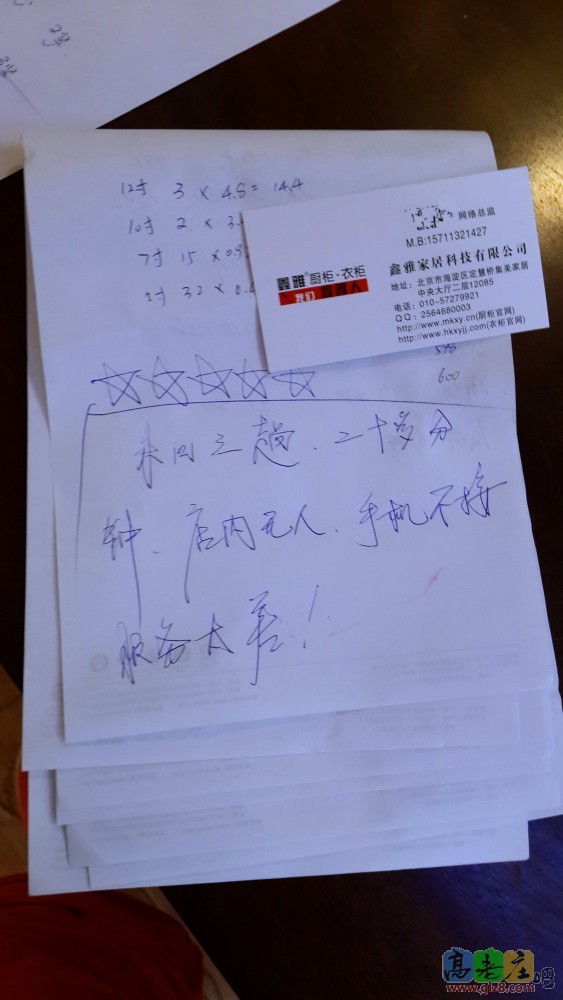 12寸 3 × 4.8 = 14.4
10寸 2 × 3.
7寸 15 × 0.9
32 × 0.
网络总监
M.B:15711321427
鑫雅家居科技有限公司
鑫雅 厨柜·衣柜
我们
人
地址：北京市海淀区定慧桥集美家居
中央大厅二层12085
电话：010-57279921
QQ：2564680003
http://www.mkxy.cn(厨柜官网)
http://www.hkxyjj.com(衣柜官网)
600
来回三趟、二十多分
钟、店内无人、手机不接
服务太差！
高老庄
www.glz8.com